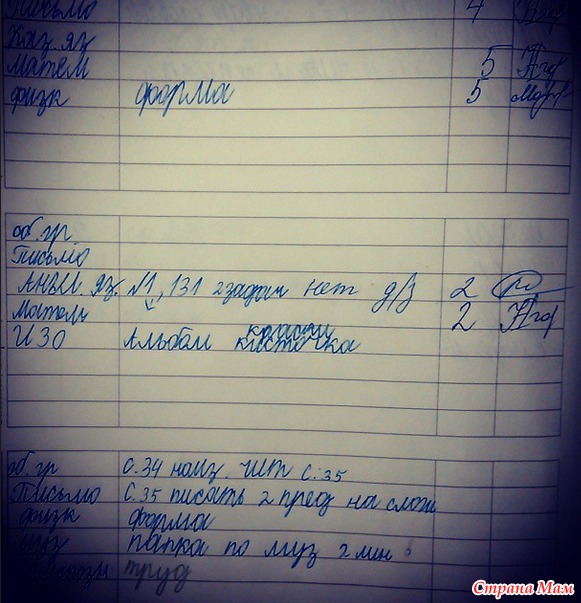 Письмо 4
Каз. яз
матем 5
физк форма 5
об. гр
Письмо
Англ. яз. №1, 131 2 задан нет д/з 2
Матем 2
ИЗО Альбом краски кисточка
об. гр с. 34 наиз. чит с. 35
Письмо с. 35 писать 2 пред на слоги
физк форма
муз папка по муз 2 мин
труд
Страна Мам